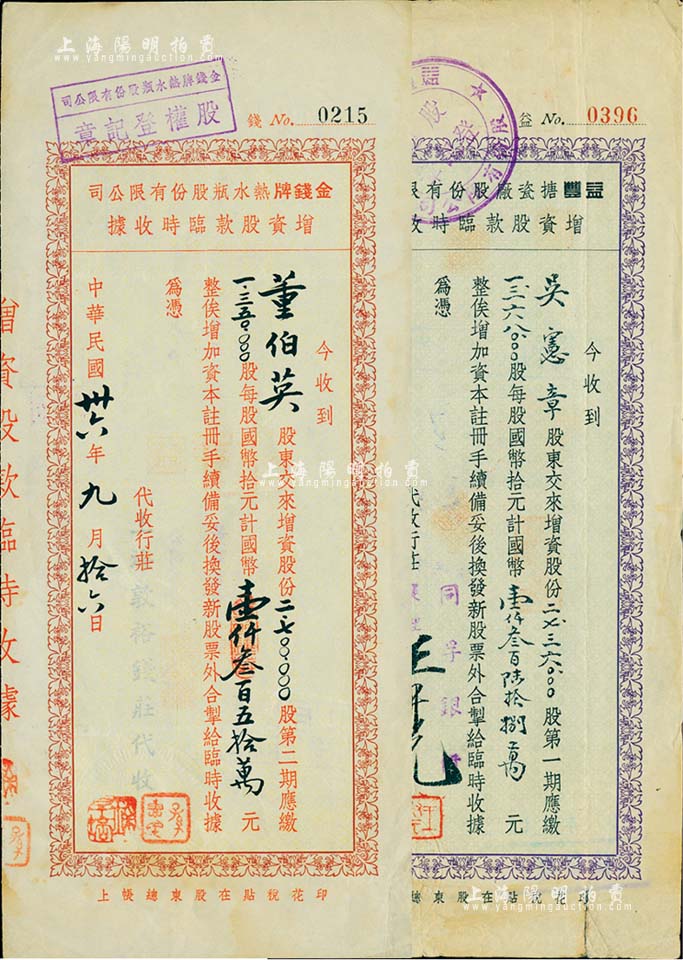 上海陽明拍賣
www.yangmingauction.com
金錢牌熱水瓶股份有限公司
股權登記章
錢 No. 0215
金錢牌熱水瓶股份有限公司
增資股款臨時收據
今收到
董伯英 股東交來增資股份二七〇〇〇〇 股第二期應繳
一三五〇〇〇股每股國幣拾元計國幣壹仟叁百五拾萬 元
整俟增加資本註冊手續備妥後換發新股票外合掣給臨時收據
為憑
代收行莊
敦裕錢莊代收
中華民國卅六年九月拾六日
印花稅貼在股東總帳上
增資股款臨時收據
益 No. 0396
益豐搪瓷廠股份有限
增資股款臨時收
今收到
吳憲章 股東交來增資股份二七三六〇〇 股第一期應繳
一三六八〇〇股每股國幣拾元計國幣壹仟叁百陸拾捌萬 元
整俟增加資本註冊手續備妥後換發新股票外合掣給臨時收據
為憑
代收行莊
同孚銀
印花稅貼在股東總
上海陽明拍賣
www.yangmingauction.com
上海陽明拍賣
www.yangmingauction.com